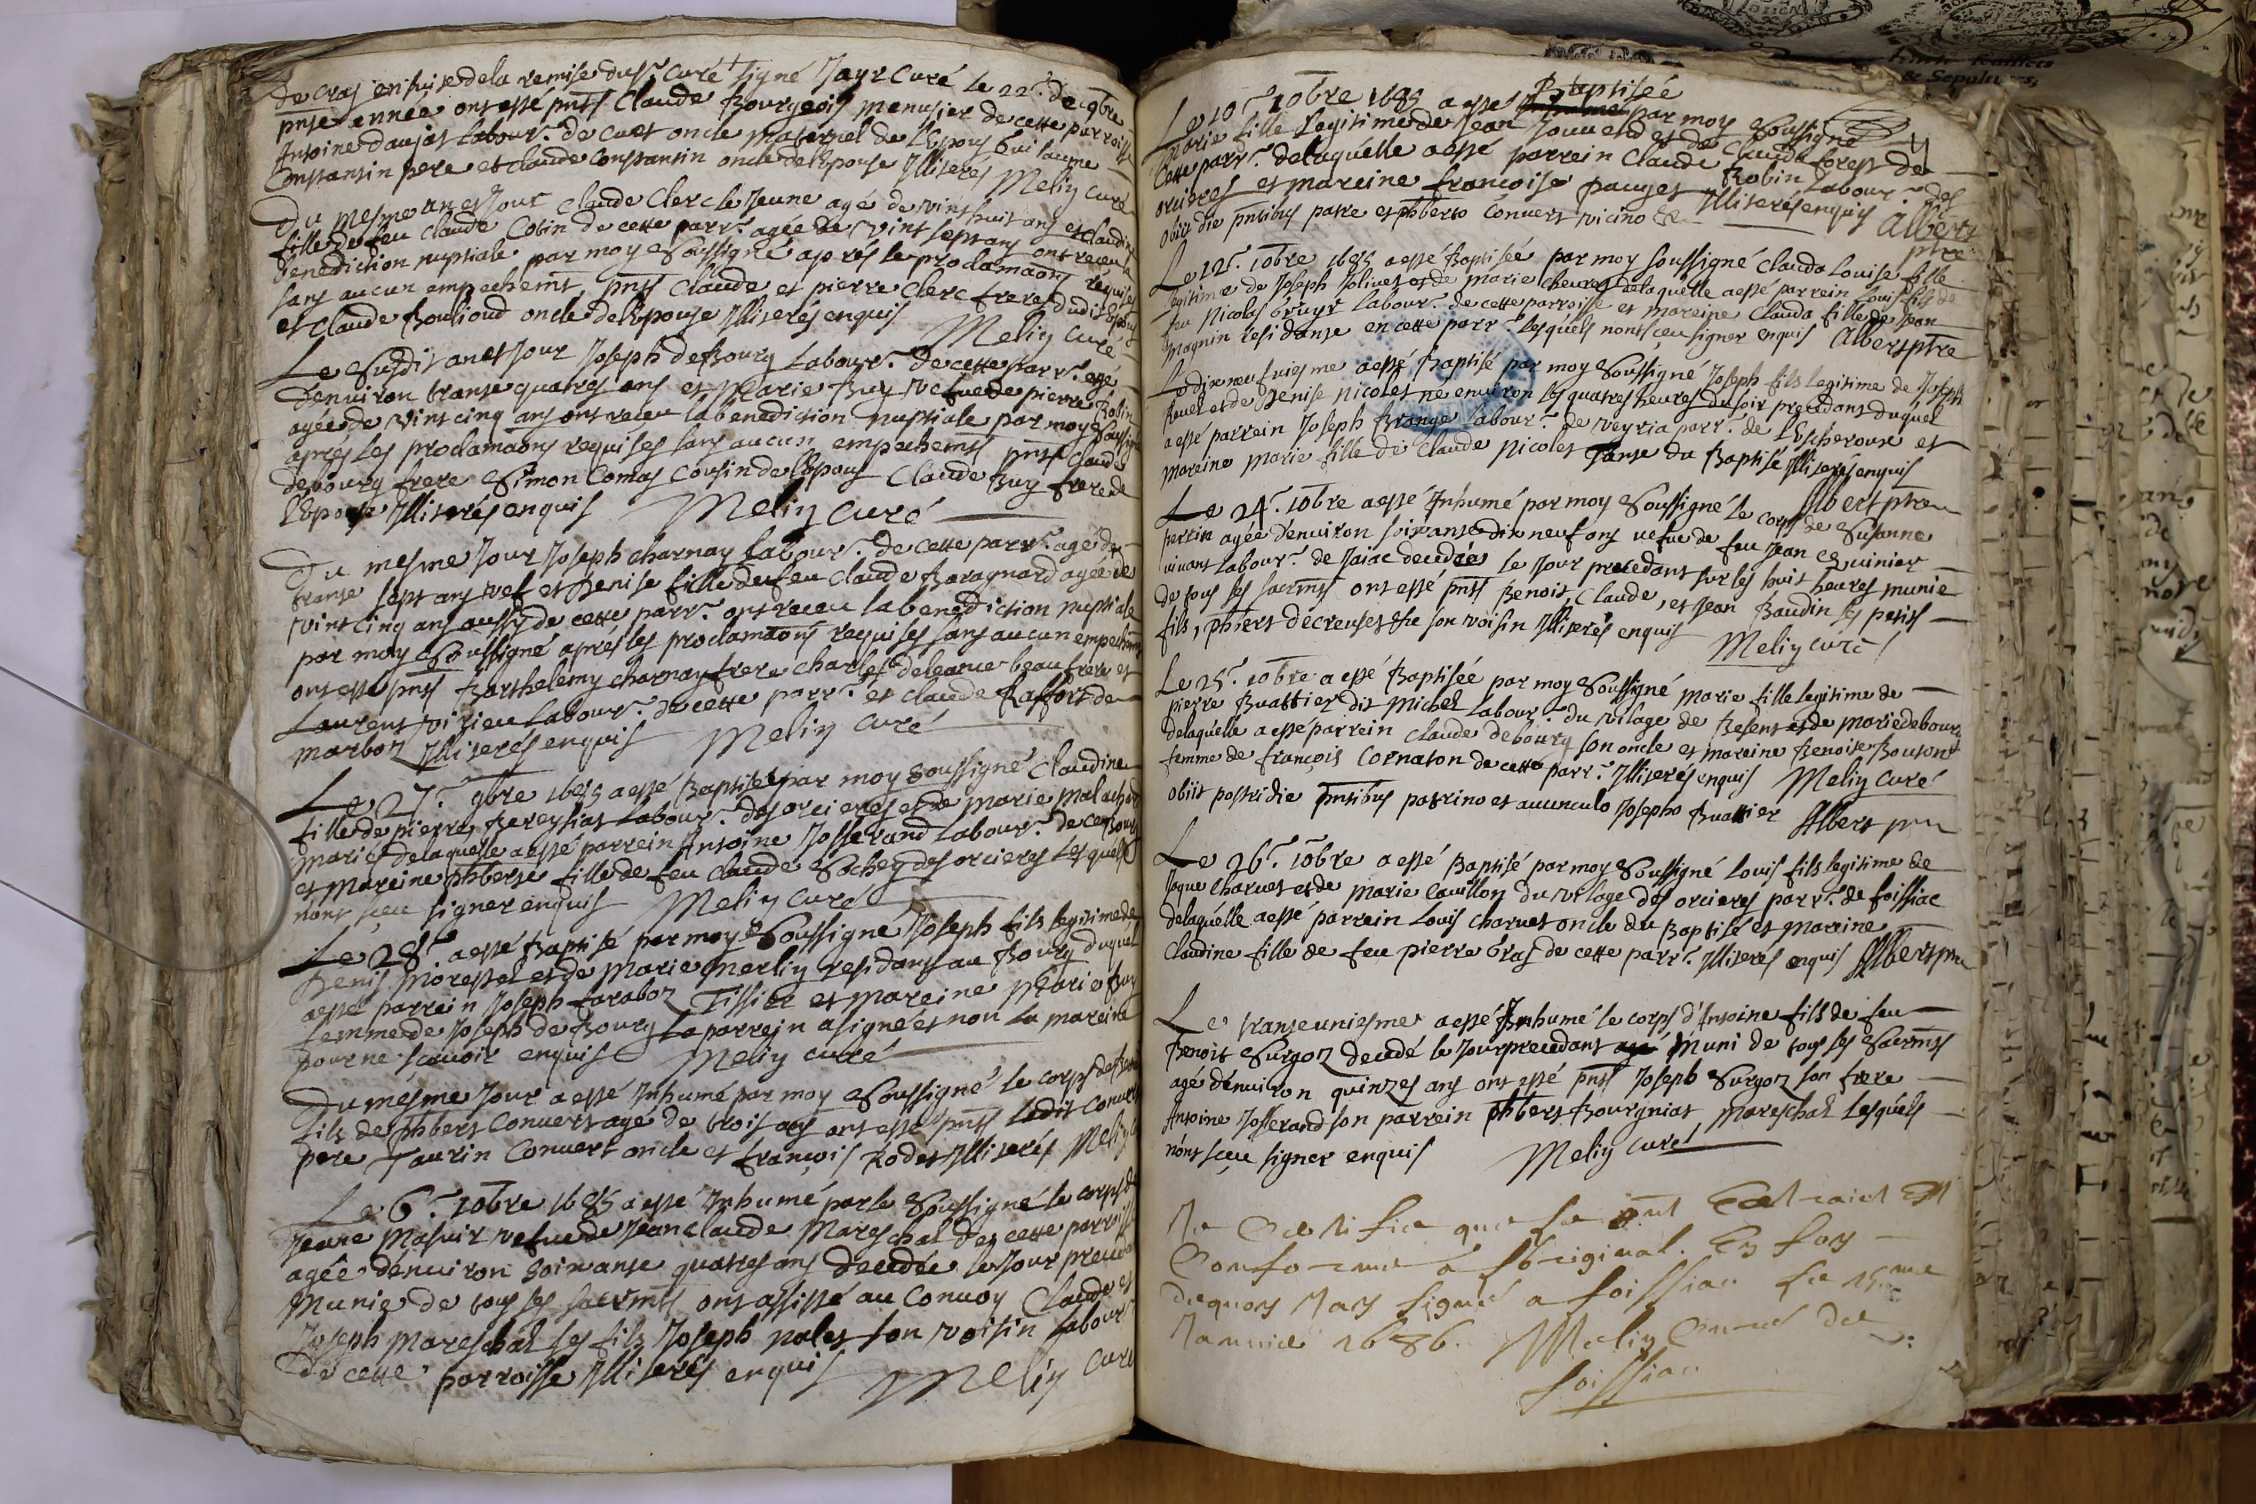 de Cras ensuite de la remise dud sr. curé signé Jayr curé le 22e. de 9bre
pnte année ont esté pnts Claude Bourgeois menusier de cette parroisse
Antoine daujat labour. de Cuet oncle maternel de l'Epous Guilaume
Constantin pere et claude Constantin oncle de l'Epouse Illiterés Meliy Curé
Du mesme an et Jour Claude Clerc le Jeune agé de vint huit ans et Claudine
fille de feu claude Cobin de cette parr. agée de vint sept ans ont receu la
benediction nuptiale par moy Soussigné aprés les proclamaons requises
sans aucun empechemt pnts Claude et pierre Clerc freres dudit Epous
et Claude Bouliond oncle de l'Epouse Illiterés enquis Meliy Curé
Le Susdit an et Jour Joseph deBourg Labour. de cette parr. agé
d'environ trante quatres ans et Marie Buy vefue de pierre Robin
agée de vint cinq ans ont receu la benediction nuptiale par moy Soussigné
aprés les proclamaons requises sans aucun empechemt pnts claude
debourg frere Simon Comas Cousin de l'Epous Claude Buy frere de
l'Epouse Illiterés enquis Meliy Curé
Du mesme Jour Joseph charnay labour. de cette parr. agé de
trante sept ans vef et Denise fille de feu Claude Baragnard agée de
vint cinq ans aussy de cette parr. ont receu la benediction nuptiale
par moy Soussigné aprés les proclamaons requises sans aucun empechemt
ont esté pnts Barthelemy charnay frere charles deleance beau frere et
Laurent virieu labour. de cette parr. et claude Raffort de
marboz Illiterés enquis Meliy Curé
Le 27e. 9bre 1685 a esté Baptisée par moy soussigné Claudine
fille de pierre Bereysiat Labour. des orcieres et de marie
mariés delaquelle a esté parrein Antoine Josserand labour. de ce Bourg
et Mareine phberte fille de feu Claude Sochey des orcieres Lesquels
n'ont sceu signer enquis Meliy Curé
Le 28e. a esté Baptisé par moy Soussigné Joseph fils legitime de
Denis Morestel et de Marie Merliy residants au Bourg duquel
a esté parrein Joseph faraboz Tissier et Mareine Marie Buy
femme de Joseph de Bourg Le parrein a signé et non La mareine
pour ne scavoir enquis Meliy Curé
Du mesme Jour a esté Inhumé par moy Soussigné le corps de
fils de phbert Convert agé de trois ans ont esté pnts Ledit Convert
pere Taurin Convert oncle et françois Rodet Illiterés Meliy
Le 6e. 10bre 1685 a esté Inhumé par le Soussigné le corps de
Jeane Masuir vefue de Jean claude Mareschal de cette parroisse
agée d'environ soixante quatres ans decedée le Jour precedant
Munie de tous les sacremts ont assisté au Convoy Claude et
Joseph Mareschal ses fils Joseph nalet son voisin labour.
de cette parroisse Illiterés enquis Meliy Curé
Le 10e. 10bre 1685 a esté Baptiséé par moy Soussigné
Marie fille legitime de Jean Jouuend et de Claude forest de
Cette parr. delaquélle a esté parrein Claude Robin labour. des
orcieres et mareine françoise pauget Illiterés enquis Albert
obiit die pntibus patre et phberto Convert vicino &c ptre
Le 12e. 10bre 1685 a esté Baptisée par moy soussigné Clauda Louise fille
legitime de Joseph Jolivet et de marie chevret delaquélle a esté parrein Louis fils de
feu Nicolas Gruyr labour. de cette parroisse et mareine Clauda fille de Jean
Magnin residante en cette parr. lesquels n'ont sceu signer enquis Albert ptre
Le dix neufuiesme a esté Baptisé par moy Soussigné Joseph fils legitime de Joseph
Rouel et de Denise Nicolet né environ les quatres heures du soir precedant duquel
a esté parrein Joseph Brange labour. de veyria parr. de l'Escheroux et
mareine marie fille de Claude Nicolet Tante du Baptisé Illiterés enquis
Albert ptre
Le 24e. 10bre a esté Inhumé par moy Soussigné le corps de Susanne
pertin agée d'environ soixante dix neuf ans vefue de feu Jean Quinier
vivant labour. de Jaiac decedée le Jour precedant sur les huit heures munie
de tous les sacremts ont esté pnts Benoit, Claude, et Jean Baudin ses petits
fils, phbert decreuset son voisin Illiterés enquis Meliy curé
Le 25e. 10bre a esté Baptisée par moy Soussigné Marie fille legitime de
pierre Buattier dit Michel labour. du vilage de Besent et de Marie debourg
delaquélle a esté parrein Claude debourg son oncle et mareine Benoite Bouton
femme de françois Cornaton de cette parr. Illiterés enquis Meliy Curé
obiit postridie pntibus patrino et avunculo Josepho Buattier Albert ptre
Le 26e. 10bre a esté Baptisé par moy Soussigné Louis fils legitime de
Jaque charvet et de Marie Cauillon du vilage des orcieres parr. de foissiac
delaquélle a esté parrein Louis charvet oncle du Baptisé et Mareine
Claudine fille de feu pierre Gras de cette parr. Illiterés enquis Albert ptre
Le tranteuniesme a esté Inhumé le corps d'Antoine fils de feu
Benoit Surgoz decedé le Jour precedant Muni de tous les Sacremts
agé d'environ quinzes ans ont esté pnts Joseph Surgoz son frere
Antoine Josserand son parrein phbert Bourgniat Mareschal Lesquels
n'ont sceu signer enquis Meliy curé
Je Certifie que le pnt Extraict Est
Conforme a l'original. En foy
dequoy J'ay signé a foissiac le 15me
Januier 1686. Meliy Curé de
foissiac